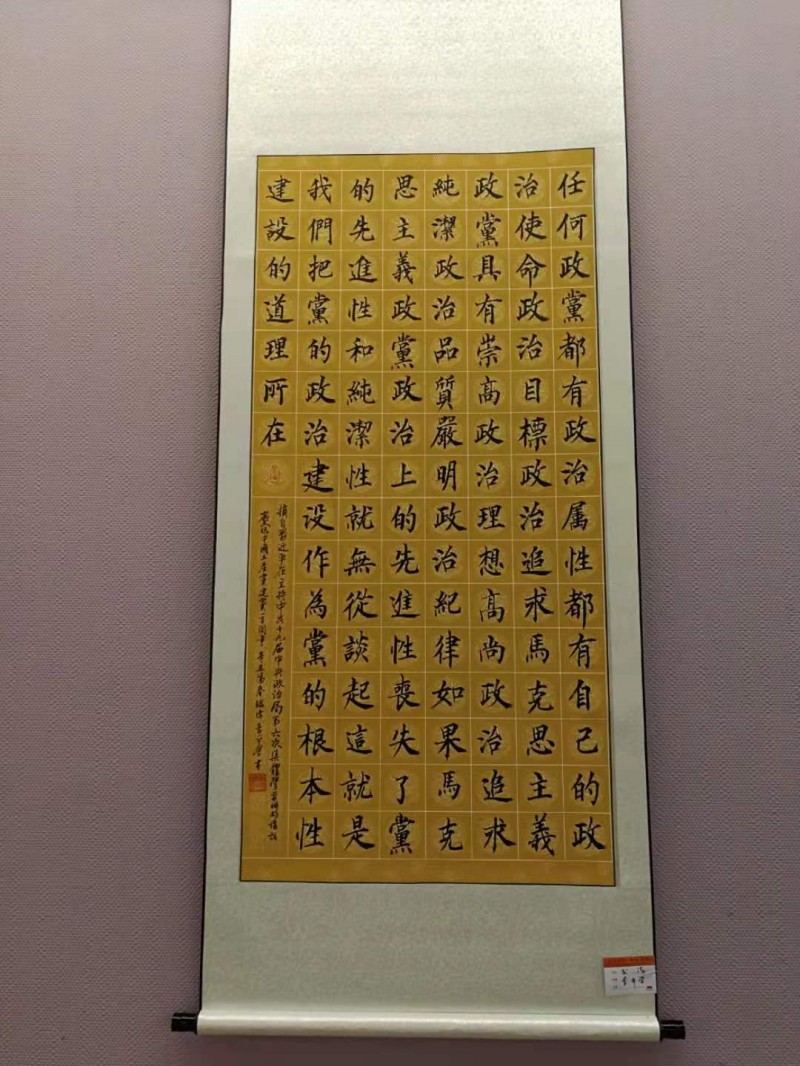 任何政黨都有政治属性都有自己的政
治使命政治目標政治追求馬克思主義
政黨具有崇高政治理想高尚政治追求
純潔政治品質嚴明政治紀律如果馬克
思主義政黨政治上的先進性喪失了黨
的先進性和純潔性就無從談起這就是
我們把黨的政治建设作為黨的根本性
建設的道理所在
摘自習近平在主持中共十九届中央政治局第六次集體學習時的講話
慶祝中國共產黨建黨一百周年